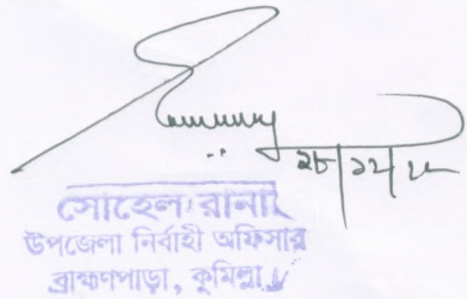 সোহেল রানা
উপজেলা নির্বাহী অফিসার
ব্রাহ্মণপাড়া, কুমিল্লা